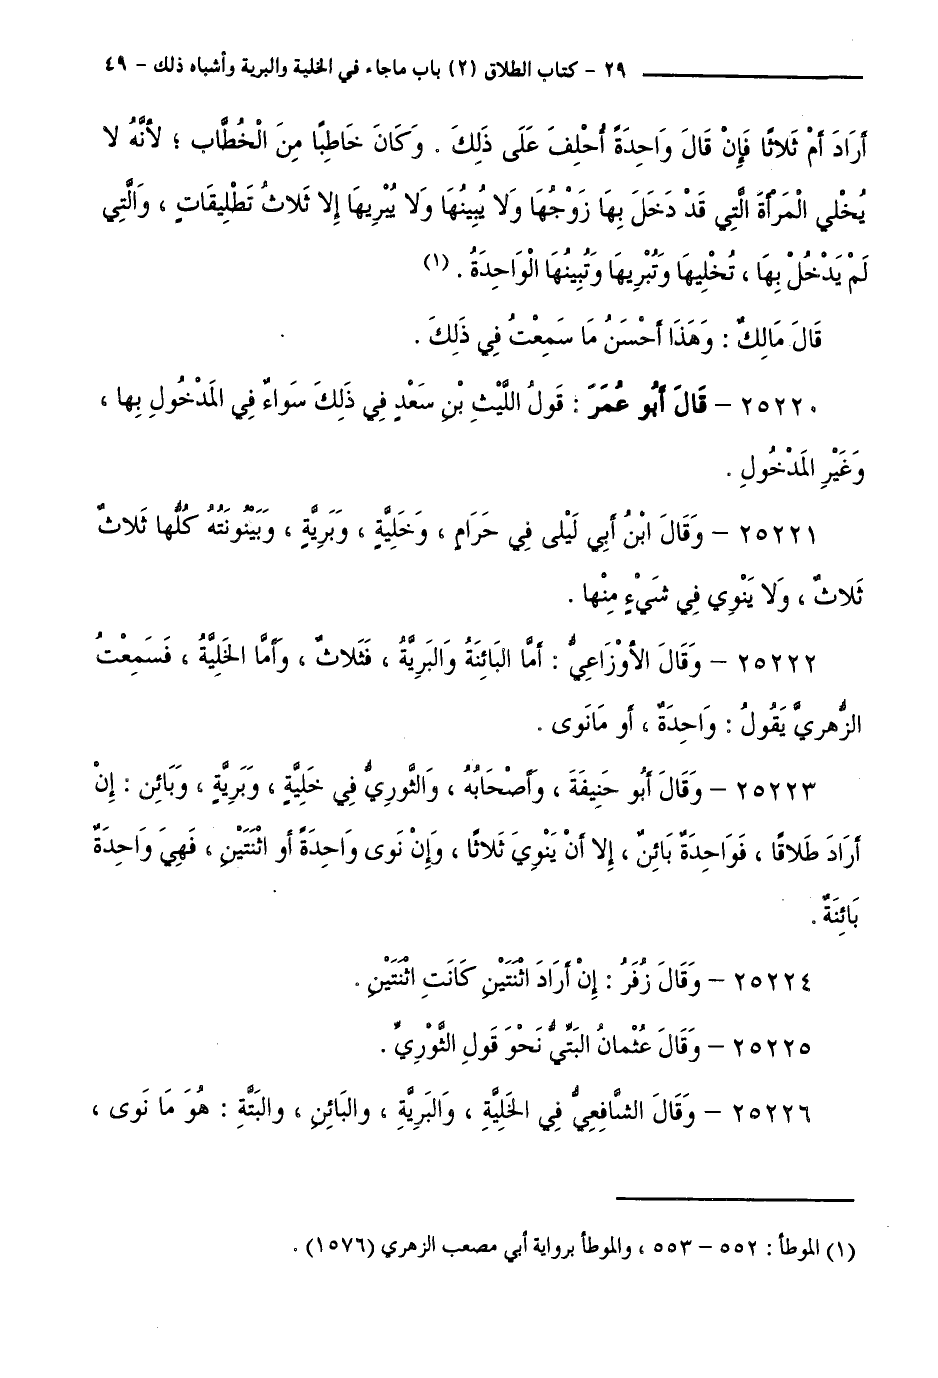 ٢٩ - كتاب الطلاق (٢) باب ماجاء في الخلية والبرية وأشباه ذلك - ٤٩
أَرَادَ أَمْ ثَلاثًا فَإِنْ قَالَ وَاحِدَةً أُحْلِفَ عَلَى ذَلِكَ . وَكَانَ خَاطِبًا مِنَ الْخُطَّابِ ؛ لأَنَّهُ لا
يُخْلي الْمَرْأَةَ الَّتِي قَدْ دَخَلَ بِهَا زَوْجُهَا وَلا يُبِينُهَا وَلا يُبْرِيهَا إِلا ثَلاثُ تَطْلِيقَاتٍ ، وَالَّتِي
لَمْ يَدْخُلْ بِهَا ، تُخْلِيهَا وَتُبْرِيهَا وَتُبِينُهَا الْوَاحِدَةُ . (١)
قَالَ مَالِكٌ : وَهَذَا أَحْسَنُ مَا سَمِعْتُ فِي ذَلِكَ .
٢٥٢٢٠ - قَالَ أَبُو عُمَرَ : قَولُ اللَّيْثِ بْنِ سَعْدٍ فِي ذَلِكَ سَواءٌ فِي المَدْخُولِ بِها ،
وَغَيْرِ المَدْخُولِ .
٢٥٢٢١ - وَقَالَ ابْنُ أَبِي لَيْلى فِي حَرَامٍ ، وَخَلِيَّةٍ ، وَبَرِيَّةٍ ، وَبَيْنُونَتُهُ كُلُّها ثَلاثٌ
ثَلاثٌ ، وَلا يَنْوِي فِي شَيْءٍ مِنْها .
٢٥٢٢٢ - وَقَالَ الأَوْزَاعِيُّ : أَمَّا البَائِنَةُ وَالبَرِيَّةُ ، فَثَلاثٌ ، وَأَمَّا الخَلِيَّةُ ، فَسَمِعْتُ
الزُّهريَّ يَقُولُ : وَاحِدَةٌ ، أو مَانَوى .
٢٥٢٢٣ - وَقَالَ أَبُو حَنِيفَةَ ، وَأَصْحَابُهُ ، وَالثَّوريُّ فِي خَلِيَّةٍ ، وَبَرِيَّةٍ ، وَبَائِنٍ : إِنْ
أَرَادَ طَلاقًا ، فَوَاحِدَةٌ بَائِنٌ ، إِلا أَنْ يَنْوِيَ ثَلاثًا ، وَإِنْ نَوى وَاحِدَةً أو اثْنَتَيْنِ ، فَهِيَ وَاحِدَةٌ
بَائِنَةٌ .
٢٥٢٢٤ - وَقَالَ زُفَرُ : إِنْ أَرَادَ اثْنَتَيْنِ كَانَتِ اثْنَتَيْنِ .
٢٥٢٢٥ - وَقَالَ عُثْمانُ البَتِّيُّ نَحْوَ قَولِ الثَّوْرِيِّ .
٢٥٢٢٦ - وَقَالَ الشَّافِعِيُّ فِي الخَلِيَّةِ ، وَالبَرِيَّةِ ، والبَائِنِ ، والبَتَّةِ : هُوَ مَا نَوى ،
(١) الموطأ : ٥٥٢ - ٥٥٣ ، والموطأ برواية أبي مصعب الزهري (١٥٧٦) .